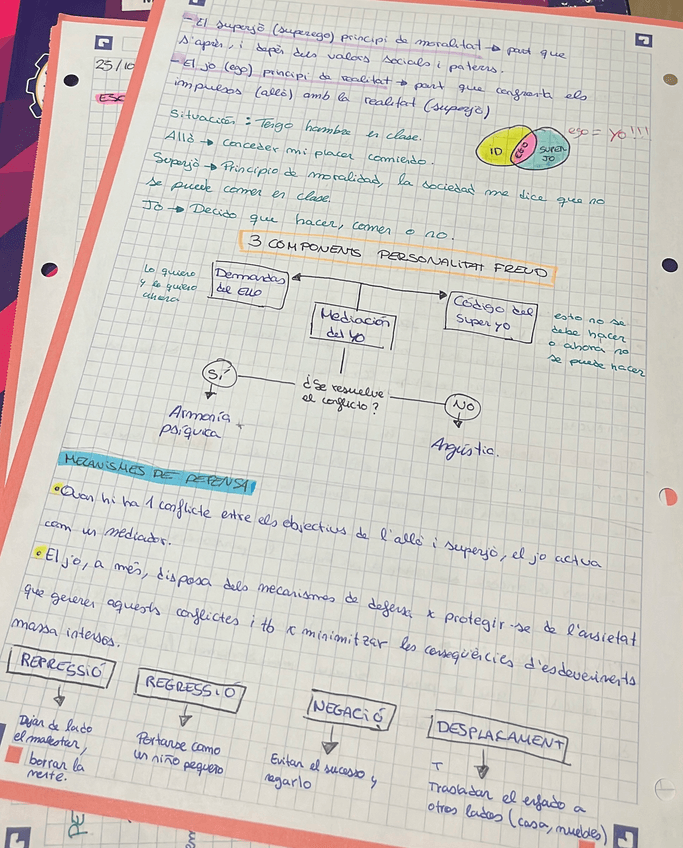 - El superjò (superego) principi de moralitat → part que
s'aprèn, i deper dels valors socials i paterns.
- El jo (ego) principi de realitat → part que confronta els
impulsos (allò) amb la realitat (superjo)
Situación: Tengo hambre en clase.
Allò → Conceder mi placer comiendo.
Superjò → Principio de moralidad, la sociedad me dice que no
se puede comer en clase.
Jo → Decido que hacer, comer o no.
ID
EGO
SUPER
JO
ego = yo!!!
3 COMPONENTS PERSONALITAT FREUD
Lo quiero
y lo quiero
ahora
Demandas
del Ello
Mediación
del yo
Código del
Super yo
esto no se
debe hacer
o ahora no
se puede hacer
SÍ
¿Se resuelve
el conflicto?
NO
Armonía
psíquica
Angustia.
MECANISMES DE DEFENSA
Quan hi ha 1 conflicte entre els objectius de l'allò i superjò, el jo actua
com un mediador.
El jo, a més, disposa dels mecanismes de defensa x protegir-se de l'ansietat
que generen aquests conflictes i tb x minimitzar les conseqüències d'esdeveniments
massa intensos.
REPRESSIÓ
Dejar de lado
el malestar,
borrar la
mente.
REGRESSIÓ
Portarse como
un niño pequeño
NEGACIÓ
Evitan el suceso y
negarlo
DESPLAÇAMENT
Trasladar el enfado a
otros lados (casa, muebles)
25/10
ESC